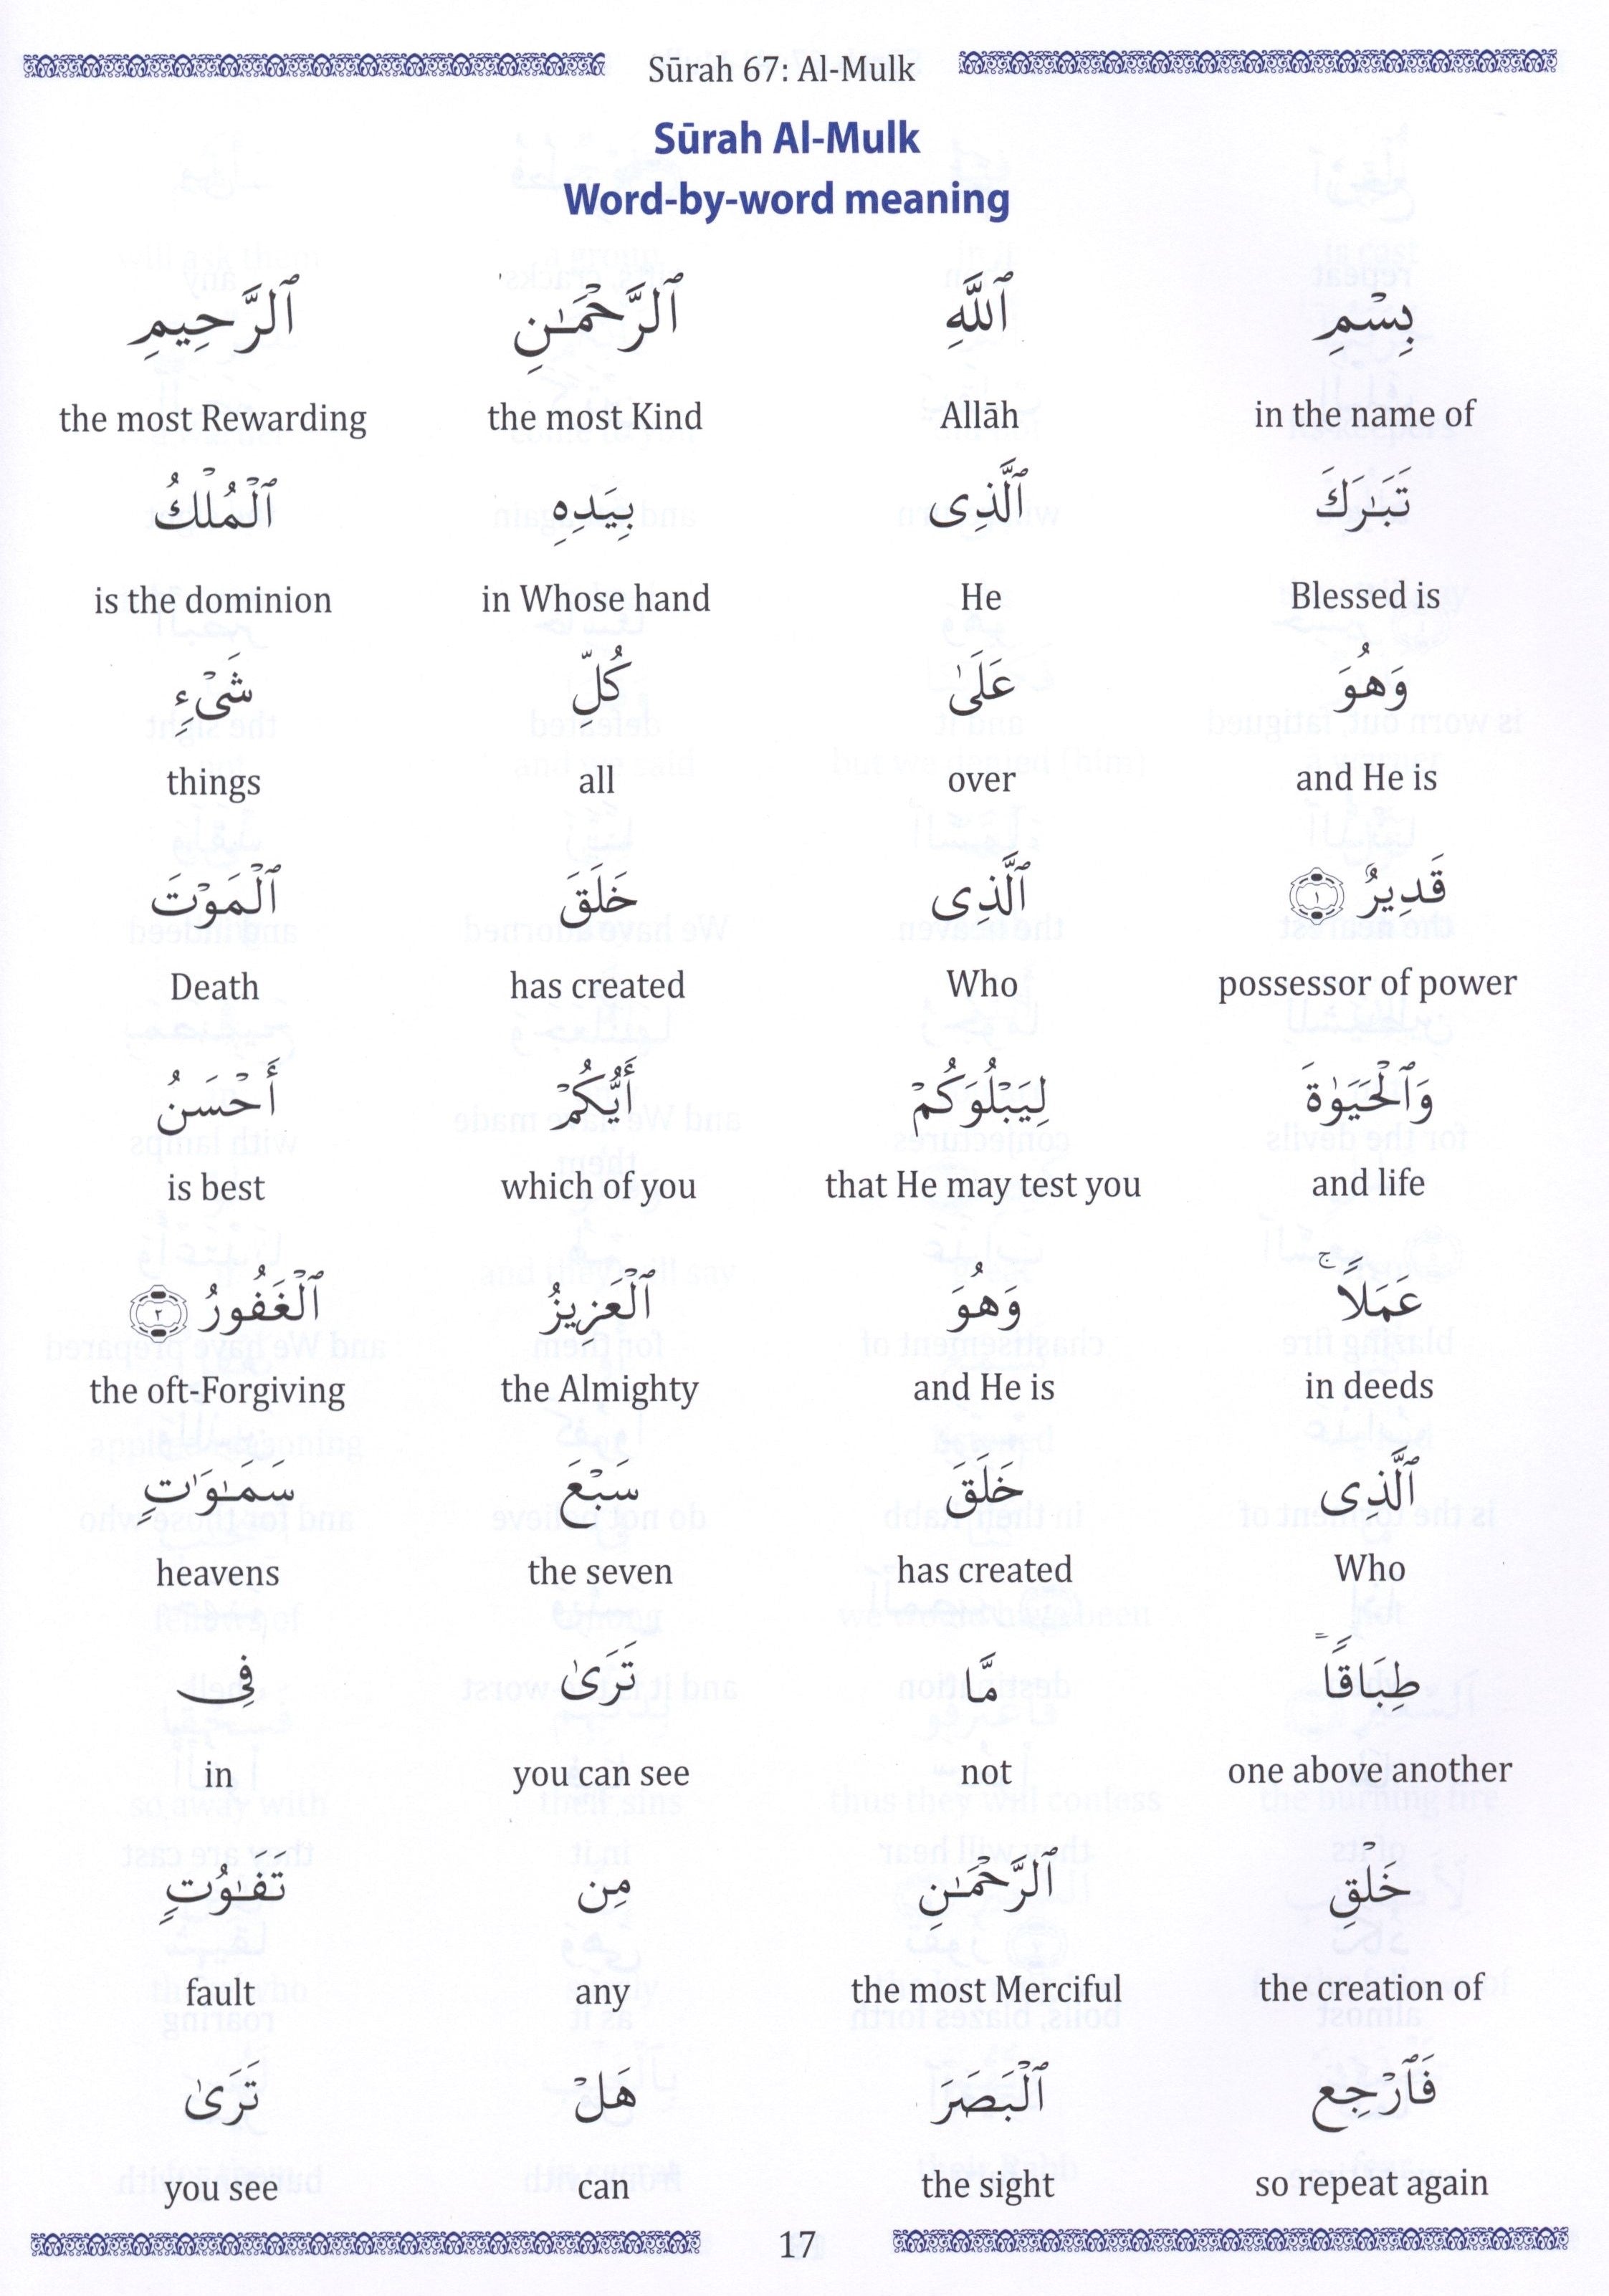 Sūrah 67: Al-Mulk
Sūrah Al-Mulk
Word-by-word meaning
بِسْمِ ٱللَّهِ ٱلرَّحْمَـٰنِ ٱلرَّحِيمِ
in the name of Allāh the most Kind the most Rewarding
تَبَـٰرَكَ ٱلَّذِى بِيَدِهِ ٱلْمُلْكُ
Blessed is He in Whose hand is the dominion
وَهُوَ عَلَىٰ كُلِّ شَىْءٍ
and He is over all things
قَدِيرٌ ۝١ ٱلَّذِى خَلَقَ ٱلْمَوْتَ
possessor of power Who has created Death
وَٱلْحَيَوٰةَ لِيَبْلُوَكُمْ أَيُّكُمْ أَحْسَنُ
and life that He may test you which of you is best
عَمَلًا ۚ وَهُوَ ٱلْعَزِيزُ ٱلْغَفُورُ ۝٢
in deeds and He is the Almighty the oft-Forgiving
ٱلَّذِى خَلَقَ سَبْعَ سَمَـٰوَٰتٍ
Who has created the seven heavens
طِبَاقًا ۖ مَّا تَرَىٰ فِى
one above another not you can see in
خَلْقِ ٱلرَّحْمَـٰنِ مِن تَفَـٰوُتٍ
the creation of the most Merciful any fault
فَٱرْجِعِ ٱلْبَصَرَ هَلْ تَرَىٰ
so repeat again the sight can you see
17